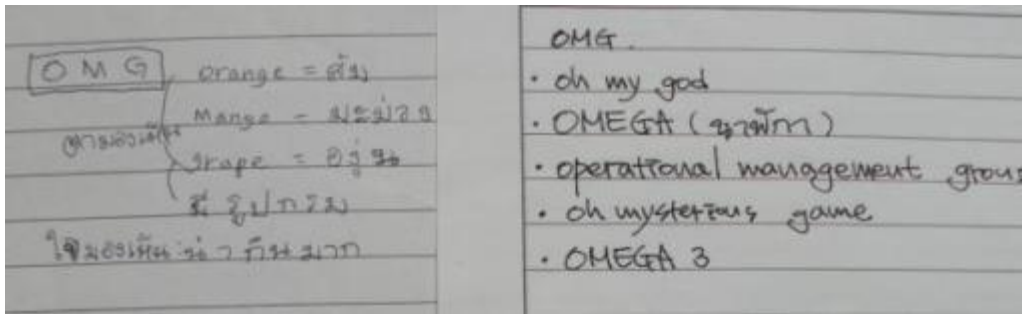 OMG
orange = ส้ม
Mango = มะม่วง
ตามองเห็น
grape = องุ่น
มีรูปทรง
มองเห็น น่ากินมาก
OMG.
• oh my god
• OMEGA (นาฬิกา)
• operational management group
• oh mysterious game
• OMEGA 3